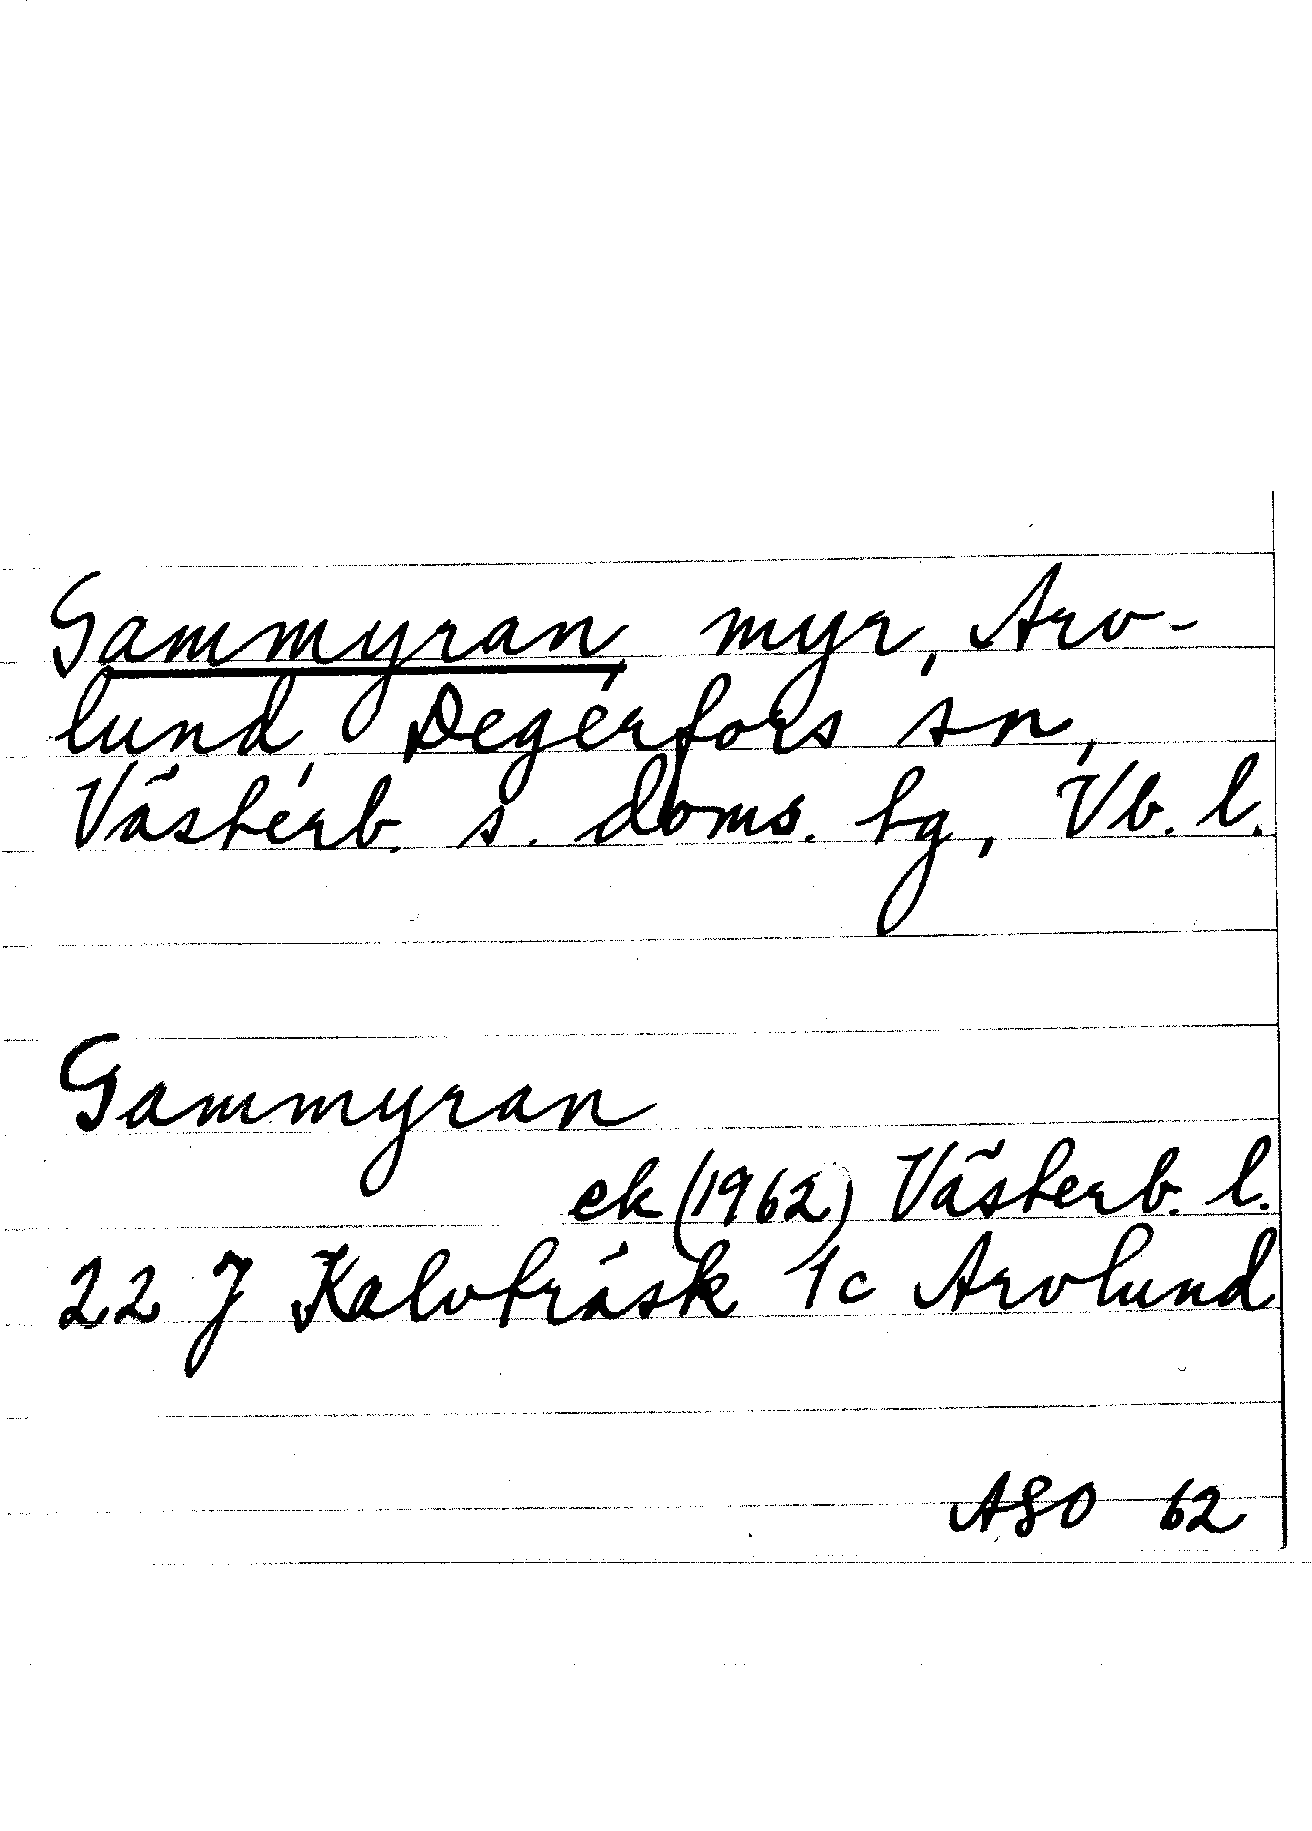 Gammyran, myr, Arv-
lund, Degerfors sn,
Västerb. s. doms. tg, Vb. l.
Gammyran
ek (1962) Västerb. l.
22 J Kalvträsk 1c Arvlund
ASO 62